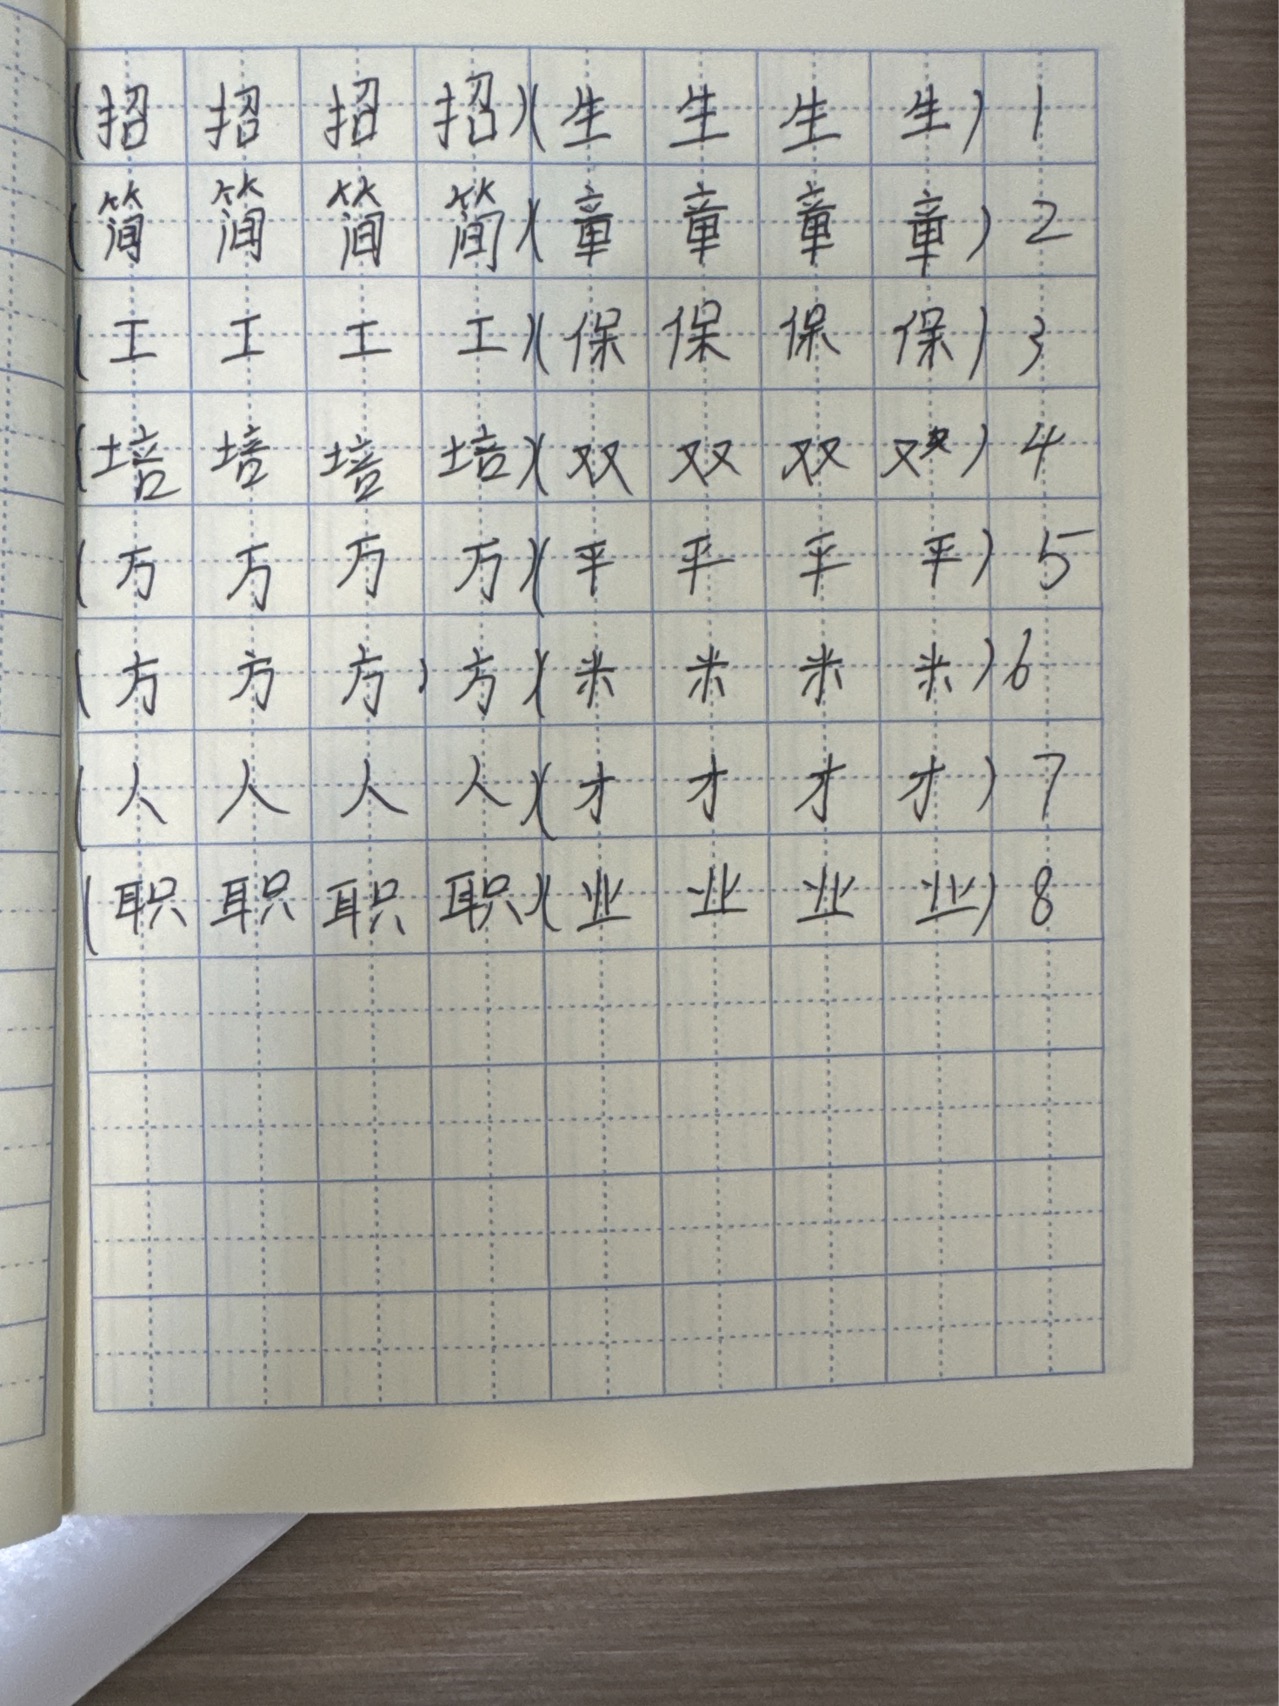 (招 招 招 招)(生 生 生 生) 1
(简 简 简 简)(章 章 章 章) 2
(工 工 工 工)(保 保 保 保) 3
(培 培 培 培)(双 双 双 双) 4
(万 万 万 万)(平 平 平 平) 5
(方 方 方) 方)(米 米 米 米) 6
(人 人 人 人)(才 才 才 才) 7
(职 职 职 职)(业 业 业 业) 8